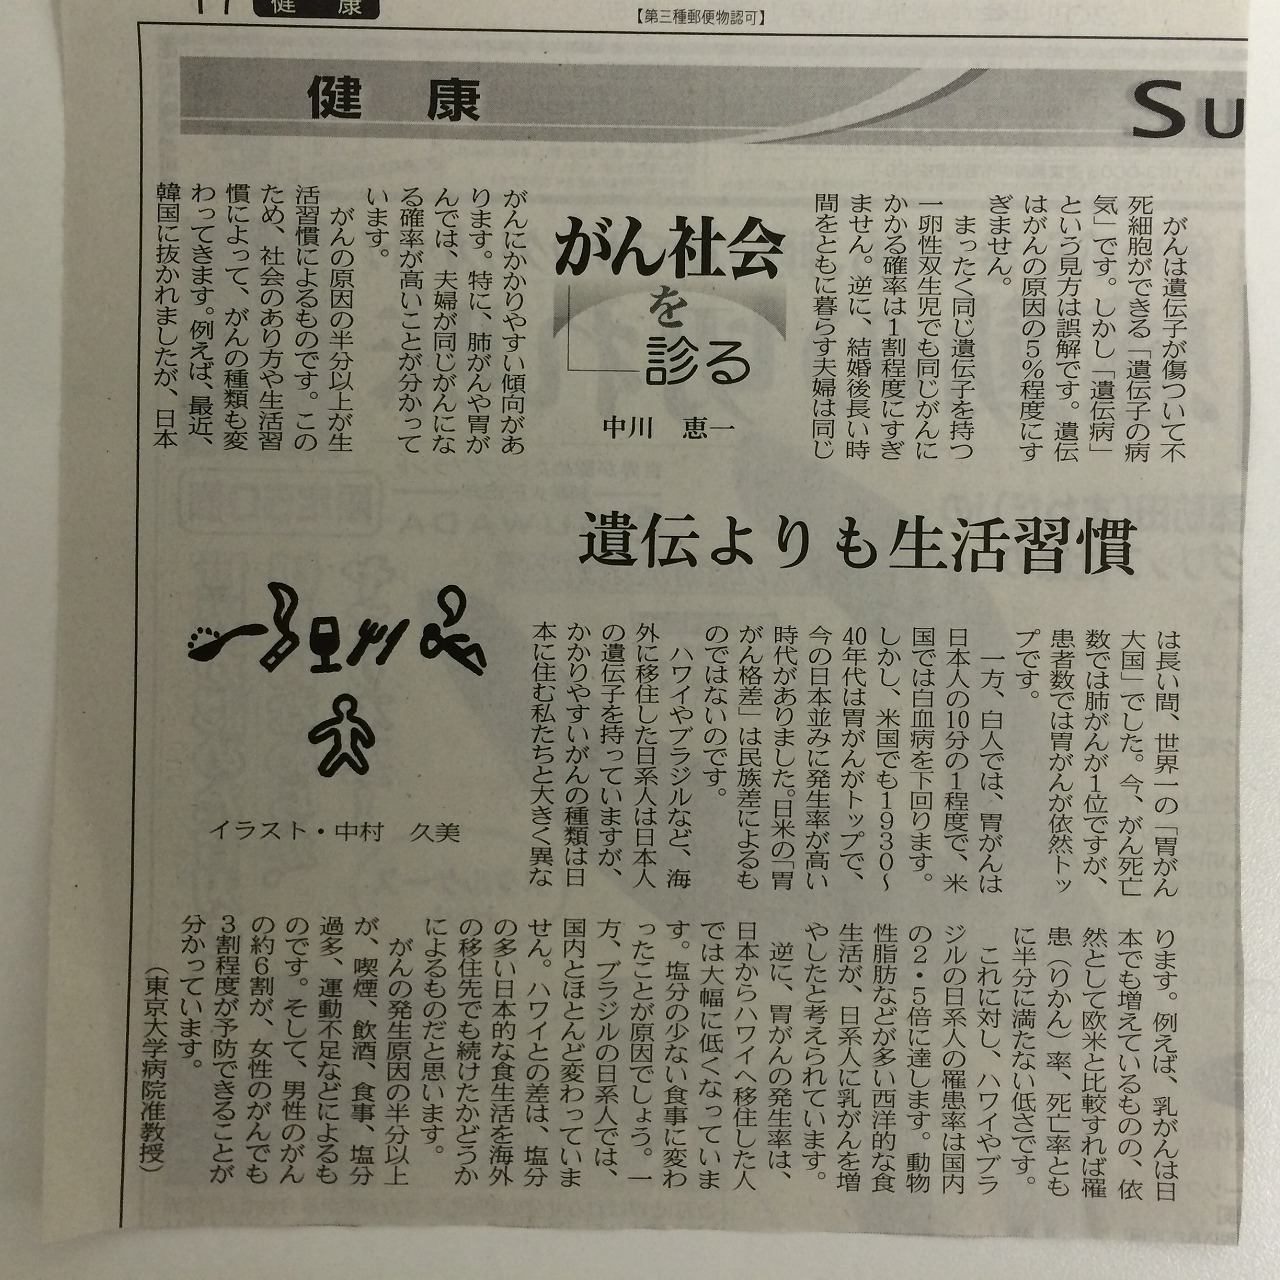 【第三種郵便物認可】
17
健 康
健 康
Su
がん社会
を
診る
中川 恵一
遺伝よりも生活習慣
がんは遺伝子が傷ついて不
死細胞ができる「遺伝子の病
気」です。しかし「遺伝病」
という見方は誤解です。遺伝
はがんの原因の5%程度にす
ぎません。
まったく同じ遺伝子を持つ
一卵性双生児でも同じがんに
かかる確率は1割程度にすぎ
ません。逆に、結婚後長い時
間をともに暮らす夫婦は同じ
がんにかかりやすい傾向があ
ります。特に、肺がんや胃が
んでは、夫婦が同じがんにな
る確率が高いことが分かって
います。
がんの原因の半分以上が生
活習慣によるものです。この
ため、社会のあり方や生活習
慣によって、がんの種類も変
わってきます。例えば、最近、
韓国に抜かれましたが、日本
は長い間、世界一の「胃がん
大国」でした。今、がん死亡
数では肺がんが1位ですが、
患者数では胃がんが依然トッ
プです。
一方、白人では、胃がんは
日本人の10分の1程度で、米
国では白血病を下回ります。
しかし、米国でも1930〜
40年代は胃がんがトップで、
今の日本並みに発生率が高い
時代がありました。日米の「胃
がん格差」は民族差によるも
のではないのです。
ハワイやブラジルなど、海
外に移住した日系人は日本人
の遺伝子を持っていますが、
かかりやすいがんの種類は日
本に住む私たちと大きく異な
ります。例えば、乳がんは日
本でも増えているものの、依
然として欧米と比較すれば罹
患（りかん）率、死亡率とも
に半分に満たない低さです。
これに対し、ハワイやブラ
ジルの日系人の罹患率は国内
の2・5倍に達します。動物
性脂肪などが多い西洋的な食
生活が、日系人に乳がんを増
やしたと考えられています。
逆に、胃がんの発生率は、
日本からハワイへ移住した人
では大幅に低くなっていま
す。塩分の少ない食事に変わ
ったことが原因でしょう。一
方、ブラジルの日系人では、
国内とほとんど変わっていま
せん。ハワイとの差は、塩分
の多い日本的な食生活を海外
の移住先でも続けたかどうか
によるものだと思います。
がんの発生原因の半分以上
が、喫煙、飲酒、食事、塩分
過多、運動不足などによるも
のです。そして、男性のがん
の約6割が、女性のがんでも
3割程度が予防できることが
分かっています。
（東京大学病院准教授）
イラスト・中村 久美